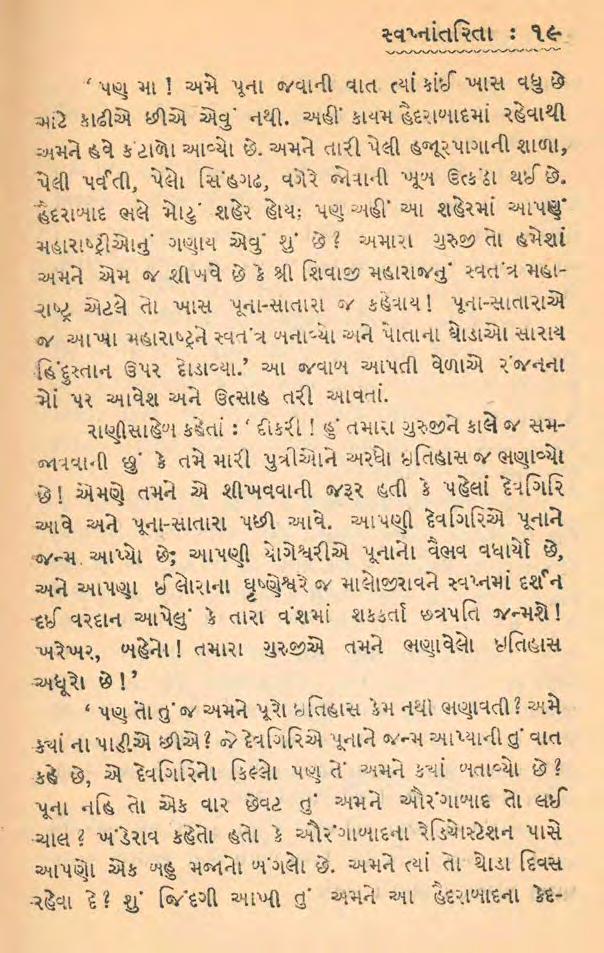 સ્વપ્નાંતરિતા : ૧૯
‘ પણ મા ! અમે પૂના જવાની વાત ત્યાં કાંઈ ખાસ વધુ છે
માટે કાઢીએ છીએ એવું નથી. અહીં કાયમ હૈદરાબાદમાં રહેવાથી
અમને હવે કંટાળો આવ્યો છે. અમને તારી પેલી હજૂરપાગાની શાળા,
પેલી પર્વતી, પેલો સિંહગઢ, વગેરે જોવાની ખૂબ ઉત્કંઠા થઈ છે.
હૈદરાબાદ ભલે મોટું શહેર હોય; પણ અહીં આ શહેરમાં આપણું
મહારાષ્ટ્રીઓનું ગણાય એવું શું છે ? અમારા ગુરુજી તો હમેશાં
અમને એમ જ શીખવે છે કે શ્રી શિવાજી મહારાજનું સ્વતંત્ર મહા-
રાષ્ટ્ર એટલે તો ખાસ પૂના-સાતારા જ કહેવાય ! પૂના-સાતારાએ
જ આખા મહારાષ્ટ્રને સ્વતંત્ર બનાવ્યો અને પોતાના ઘોડાઓ સારાય
હિંદુસ્તાન ઉપર દોડાવ્યા.’ આ જવાબ આપતી વેળાએ રંજનના
મોં પર આવેશ અને ઉત્સાહ તરી આવતાં.
રાણીસાહેબ કહેતાં : ‘ દીકરી ! હું તમારા ગુરુજીને કાલે જ સમ-
જાવવાની છું કે તમે મારી પુત્રીઓને અરધો ઇતિહાસ જ ભણાવ્યો
છે ! એમણે તમને એ શીખવવાની જરૂર હતી કે પહેલાં દેવગિરિ
આવે અને પૂના-સાતારા પછી આવે. આપણી દેવગિરિએ પૂનાને
જન્મ આપ્યો છે; આપણી યોગેશ્વરીએ પૂનાનો વૈભવ વધાર્યો છે,
અને આપણા ઈલોરાના ઘૃષ્ણેશ્વરે જ માલોજીરાવને સ્વપ્નમાં દર્શન
દઈ વરદાન આપેલું કે તારા વંશમાં શકકર્તા છત્રપતિ જન્મશે !
ખરેખર, બહેનો ! તમારા ગુરુજીએ તમને ભણાવેલો ઇતિહાસ
અધૂરો છે ! ’
‘ પણ તો તું જ અમને પૂરો ઇતિહાસ કેમ નથી ભણાવતી ? અમે
ક્યાં ના પાડીએ છીએ ? જે દેવગિરિએ પૂનાને જન્મ આપ્યાની તું વાત
કહે છે, એ દેવગિરિનો કિલ્લો પણ તેં અમને ક્યાં બતાવ્યો છે ?
પૂના નહિ તો એક વાર છેવટ તું અમને ઔરંગાબાદ તો લઈ
ચાલ ? ખંડેરાવ કહેતો હતો કે ઔરંગાબાદના રેડિયોસ્ટેશન પાસે
આપણો એક બહુ મજાનો બંગલો છે. અમને ત્યાં તો થોડા દિવસ
રહેવા દે ? શું જિંદગી આખી તું અમને આ હૈદરાબાદના કેદ-